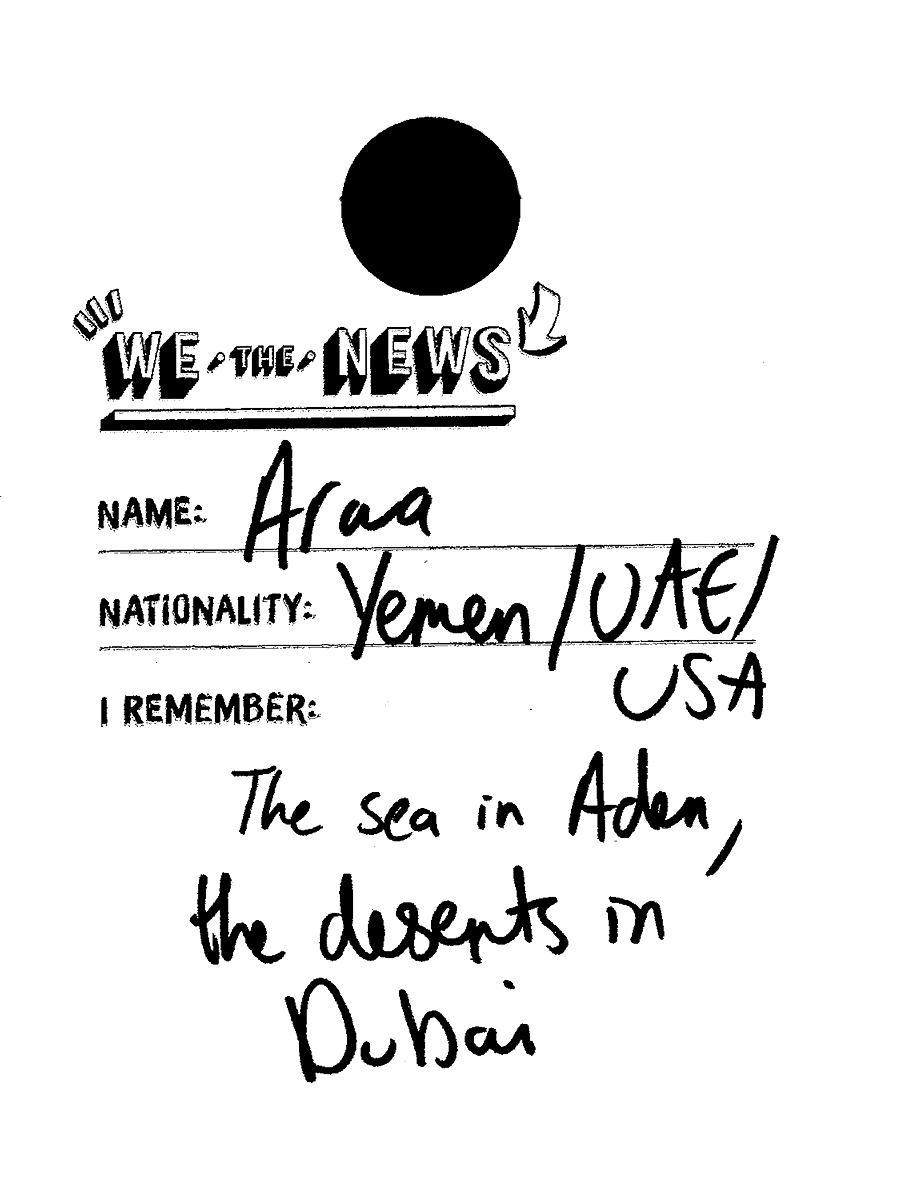 WE THE NEWS
NAME: Araa
NATIONALITY: Yemen/UAE/
USA
I REMEMBER:
The sea in Aden,
the deserts in
Dubai